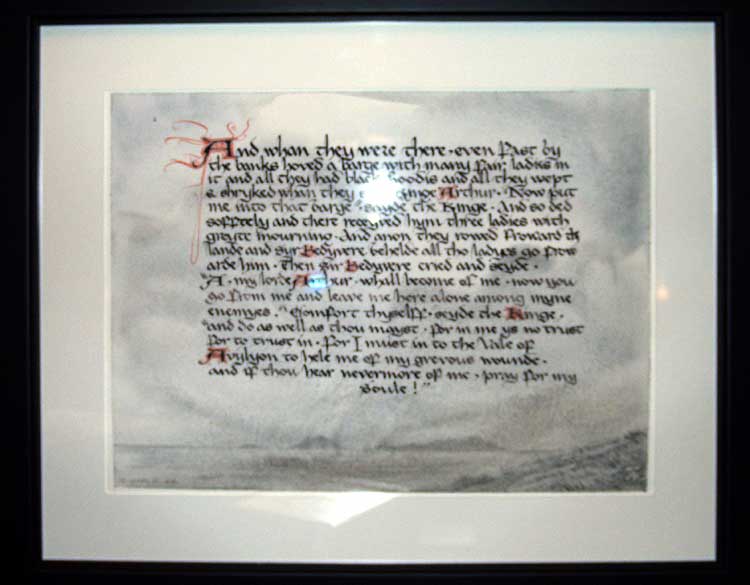 And whan they were there · even fast by
the banks hoved a barge with many fair ladies in
it and all they had black hoodis and all they wept
& shryked whan they Kinge Arthur · "Now put
me into that barge" · sayde the Kinge · And so ded
sofftely and there receyved hym three ladies with
greyte mourning · And anon they rowed froward the
lande and syr Bedyvere behelde all tho ladyes go frow
arde him · Then Sir Bedyvere cried and seyde ·
"A · my lorde Arthur · whall become of me · now you
go from me and leave me here alone among myne
enemyes ." Comfort thyself · seyde the Kinge ·
"and do as well as thou mayst · for in me ys no trust
for to trust in · for I must in to the Vale of
Avylyon to hele me of my grevous wounde ·
and if thou hear nevermore of me , pray for my
soule ! "